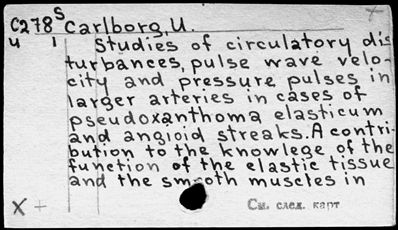 C278 S Carlborg, U.
u 1 Studies of circulatory dis
turbances, pulse wave velo-
city and pressure pulses in
larger arteries in cases of
pseudoxanthoma elasticum
and angioid streaks. A contri-
bution to the knowlege of the
function of the elastic tissue
and the smooth muscles in
X + См. след. карт